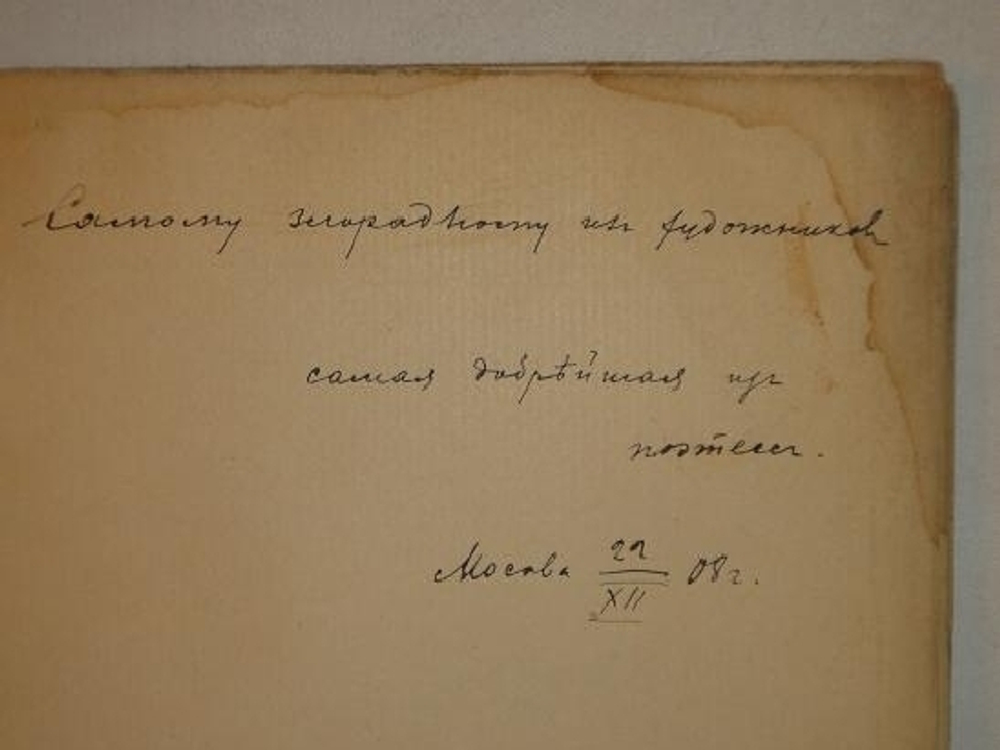 Самому злорадному изъ художниковъ
самая добрѣйшая изъ
поэтессъ.
Москва 22/XII 08 г.